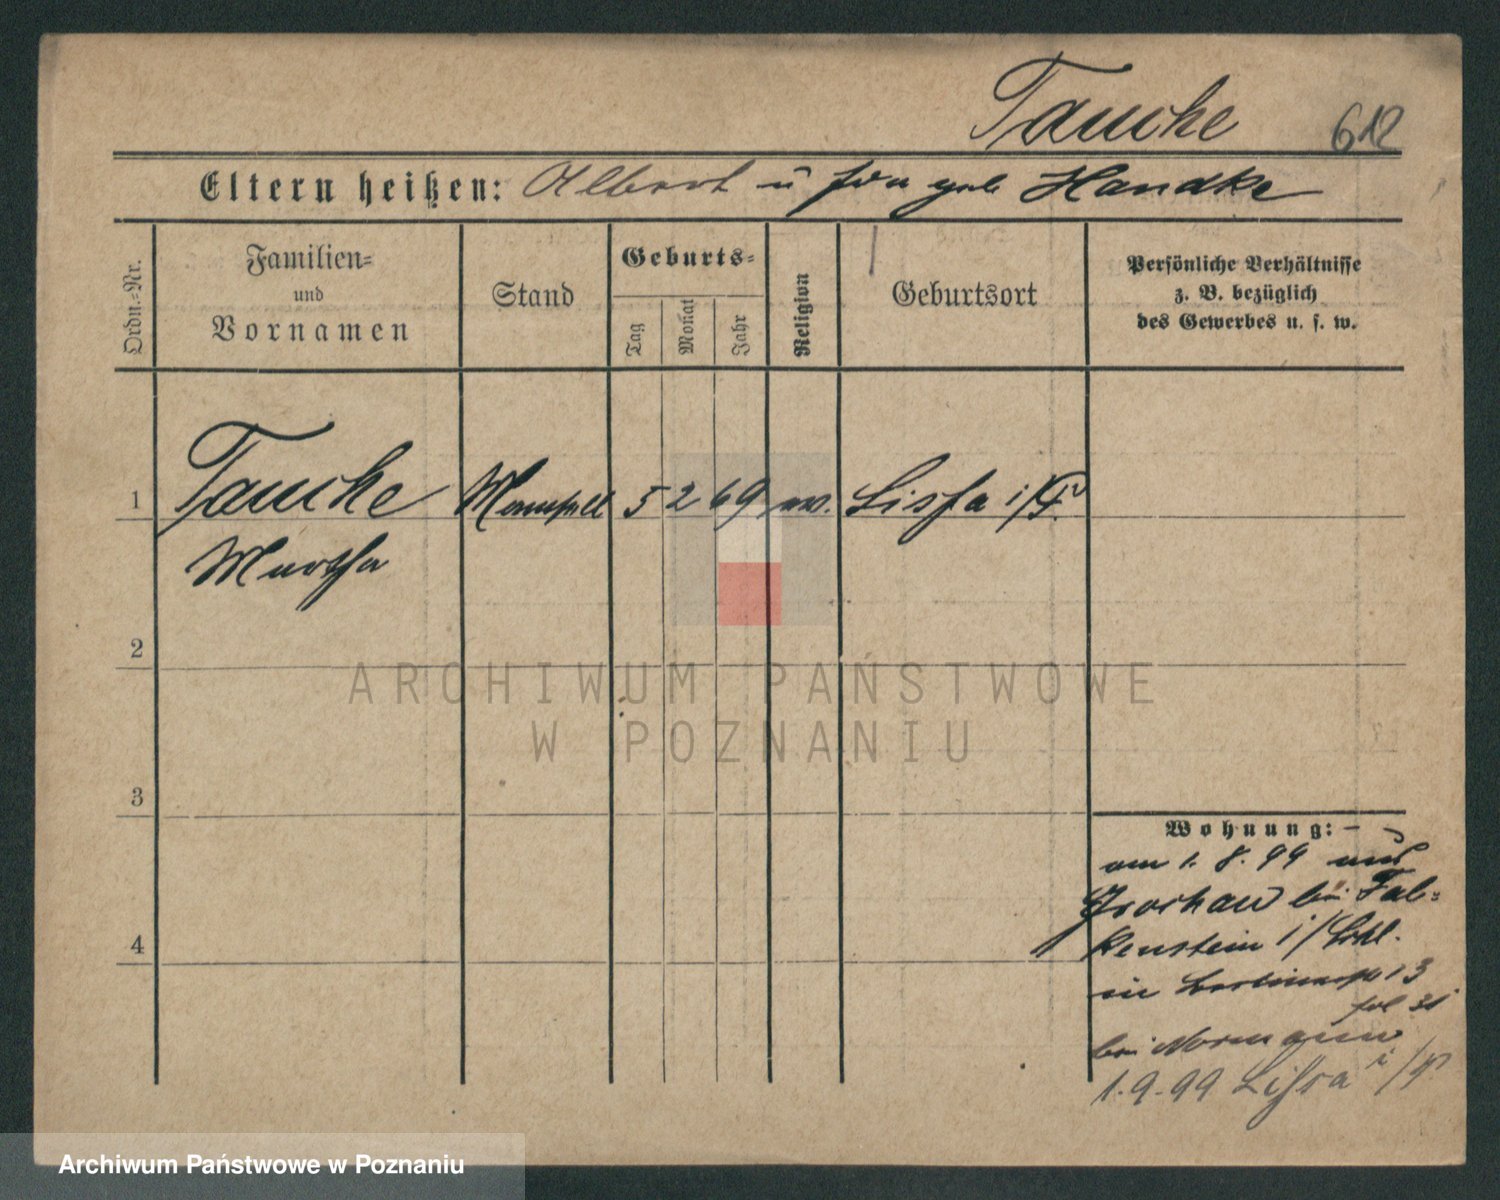 Taucke 612
Eltern heißen: Albert u Ida geb Handke
Ordn.=Nr.
Familien=
und
Vornamen
Stand
Geburts=
Tag
Monat
Jahr
Religion
Geburtsort
Persönliche Verhältnisse
z. B. bezüglich
des Gewerbes u. s. w.
1 Taucke Mamsell 5 2 69 ev. Lissa i/P.
Martha
2
3
4
Wohnung:
am 1. 8. 99 aus
Grochau bei Fal-
kenstein i/Schl.
in 13
bei Normann
1.9.99 Lissa i/P
ARCHIWUM PAŃSTWOWE
W POZNANIU
Archiwum Państwowe w Poznaniu